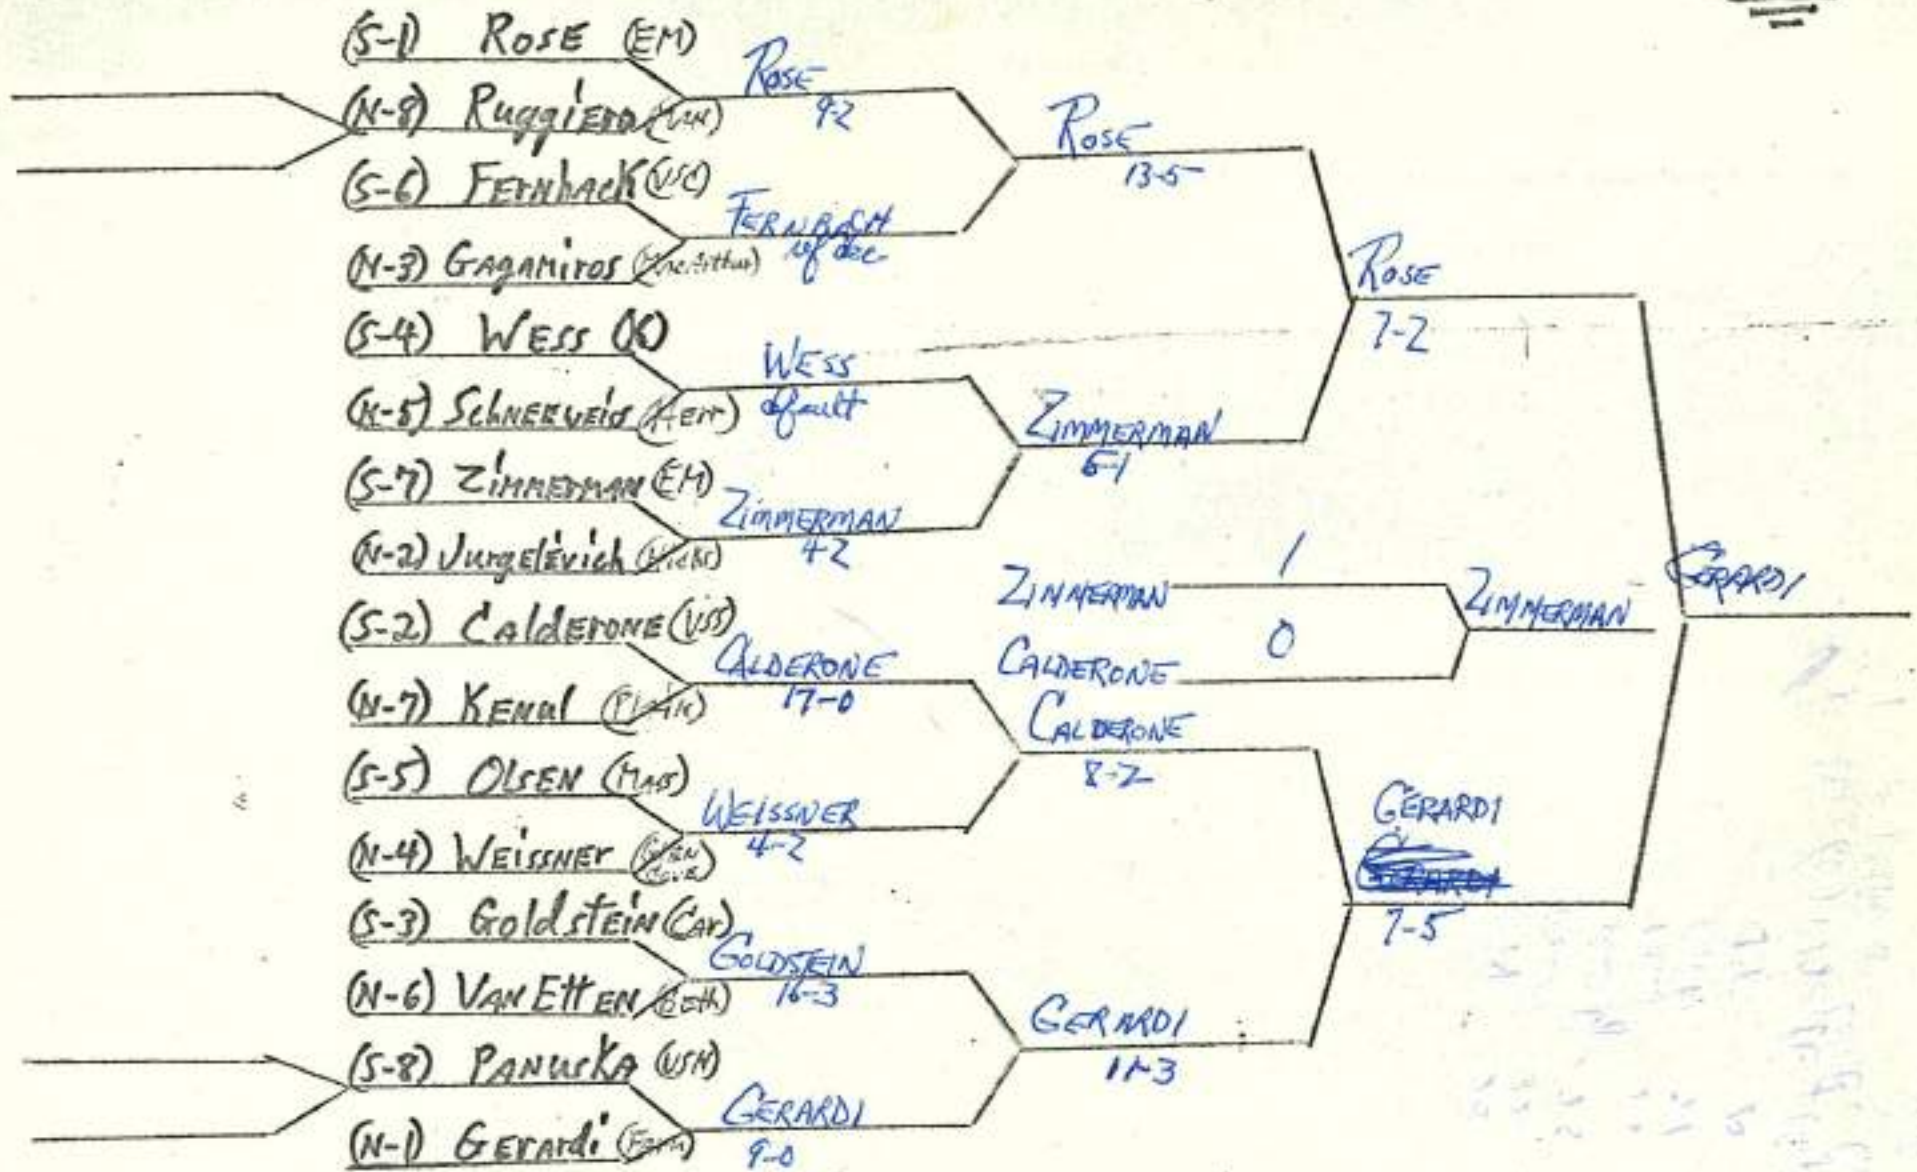 (S-1) ROSE (EM)
(N-8) Ruggiero
(S-6) Fernback (VSC)
(N-3) Gagamiros (MacArthur)
(S-4) WESS
(N-5) Schneeweis (Herr)
(S-7) Zimmerman (EM)
(N-2) Jurgelevich (Hicks)
(S-2) Calderone (VSS)
(N-7) Kemal
(S-5) OLSEN (Mass)
(N-4) Weissner (GLEN COVE)
(S-3) Goldstein (Car)
(N-6) VAN ETTEN (Beth)
(S-8) PANUSKA (VSN)
(N-1) Gerardi (Farm)
ROSE
9-2
FERNBACH
ref dec
WESS
default
ZIMMERMAN
4-2
CALDERONE
17-0
WEISSNER
4-2
GOLDSTEIN
16-3
GERARDI
9-0
ROSE
13-5
ZIMMERMAN
6-1
ZIMMERMAN 1
CALDERONE 0
ZIMMERMAN
CALDERONE
8-2
GERARDI
11-3
ROSE
7-2
GERARDI
7-5
GERARDI